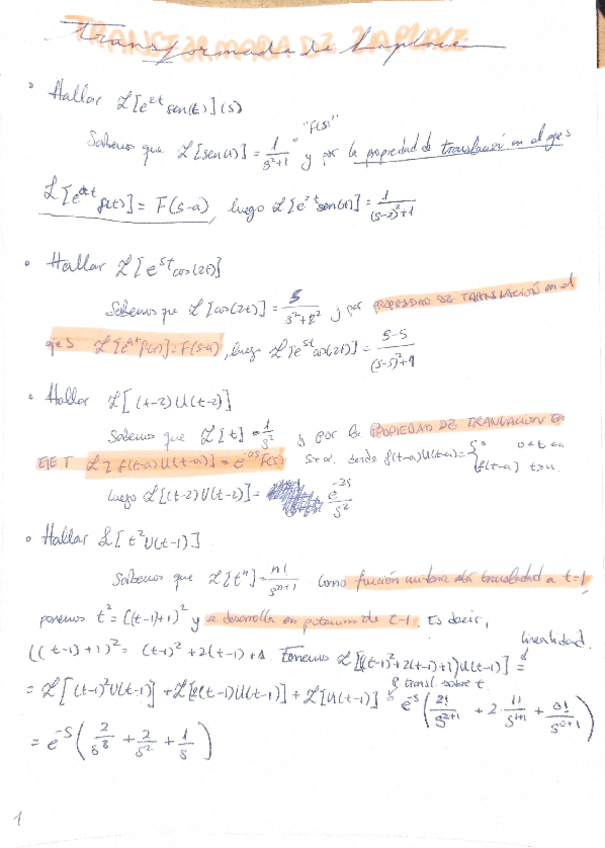 Transformada de Laplace
• Hallar ℒ[e^{2t} sen(t)](s)
"F(s)"
Sabemos que ℒ[sen(t)] = 1/(s²+1) y por la propiedad de translación en el eje s
ℒ[e^{at} f(t)] = F(s-a), luego ℒ[e^{2t} sen(t)] = 1/((s-2)²+1)
• Hallar ℒ[e^{5t} cos(2t)]
Sabemos que ℒ[cos(2t)] = s/(s²+2²) y por PROPIEDAD DE TRANSLACIÓN en el
eje S ℒ[e^{at} f(t)] = F(s-a), luego ℒ[e^{5t} cos(2t)] = (s-5)/((s-5)²+4)
• Hallar ℒ[(t-2)U(t-2)]
Sabemos que ℒ[t] = 1/s² y por la PROPIEDAD DE TRANSLACION EN
EJE T ℒ[f(t-a)U(t-a)] = e^{-as} F(s) donde f(t-a)U(t-a) = { 0 0<t<a
f(t-a) t>a
luego ℒ[(t-2)U(t-2)] = e^{-2s}/s²
• Hallar ℒ[t²U(t-1)]
Sabemos que ℒ[tⁿ] = n!/s^{n+1} Como función unitaria está transladada a t=1,
ponemos t² = ((t-1)+1)² y se desarrolla en potencias de t-1. Es decir,
((t-1)+1)² = (t-1)² + 2(t-1) + 1. Tenemos ℒ[((t-1)²+2(t-1)+1)U(t-1)] =
linealidad.
= ℒ[(t-1)²U(t-1)] + ℒ[2(t-1)U(t-1)] + ℒ[U(t-1)] = e^{-s}(2!/s^{2+1} + 2·1!/s^{1+1} + 0!/s^{0+1})
P. transl. sobre t
= e^{-s}(2/s³ + 2/s² + 1/s)
1